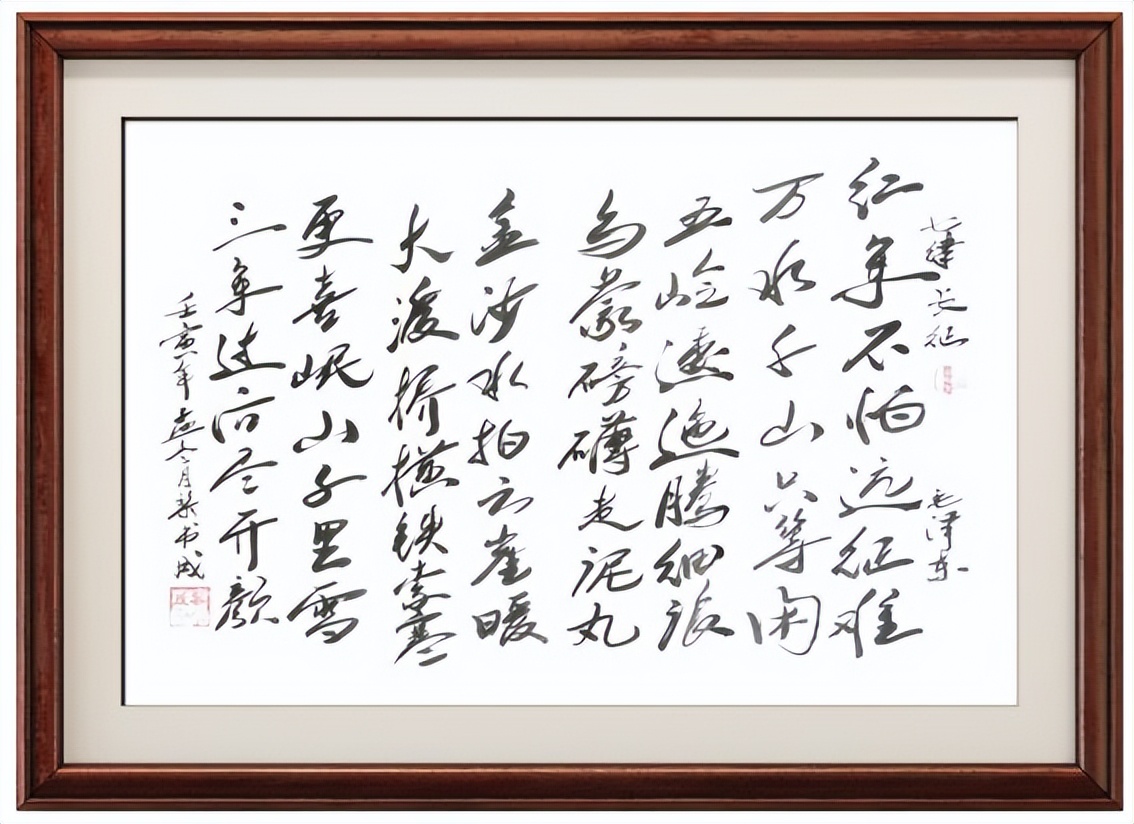 七律 长征 毛泽东
红军不怕远征难
万水千山只等闲
五岭逶迤腾细浪
乌蒙磅礴走泥丸
金沙水拍云崖暖
大渡桥横铁索寒
更喜岷山千里雪
三军过后尽开颜
壬寅年孟 月 书成